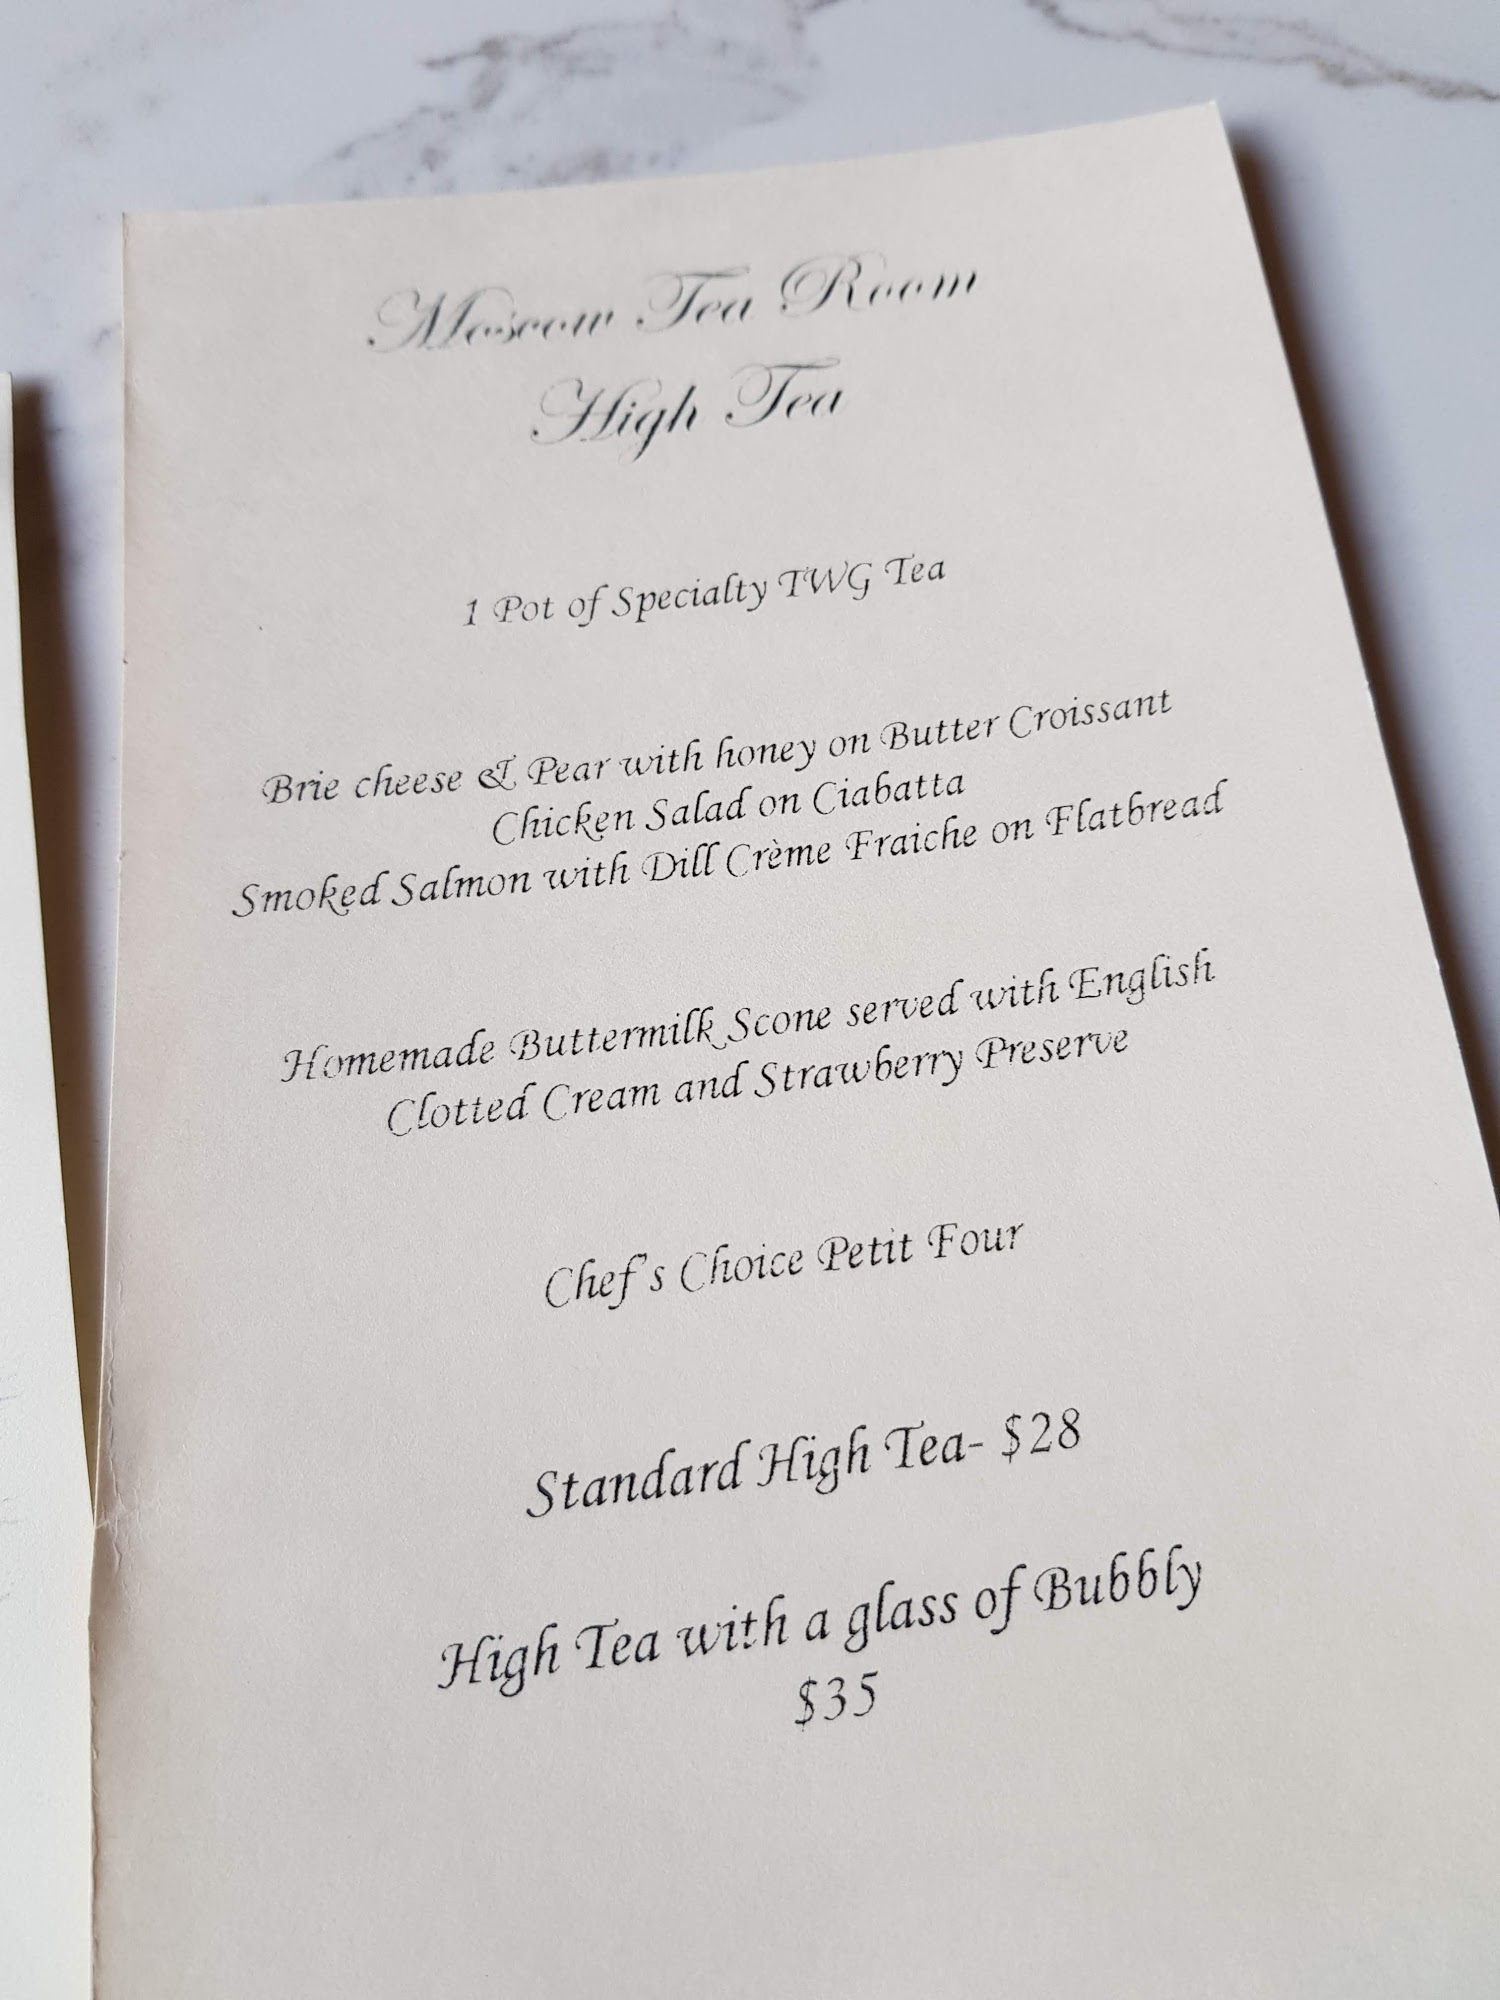 Moscow Tea Room
High Tea
1 Pot of Specialty TWG Tea
Brie cheese & Pear with honey on Butter Croissant
Chicken Salad on Ciabatta
Smoked Salmon with Dill Crème Fraiche on Flatbread
Homemade Buttermilk Scone served with English
Clotted Cream and Strawberry Preserve
Chef's Choice Petit Four
Standard High Tea- $28
High Tea with a glass of Bubbly
$35